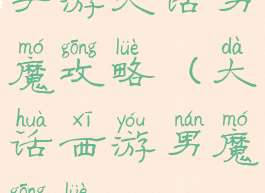 游 大 话 男
mó gōng lüè dà
魔 攻 略 （ 大
huà xī yóu nán mó
话 西 游 男 魔
gōng lüè